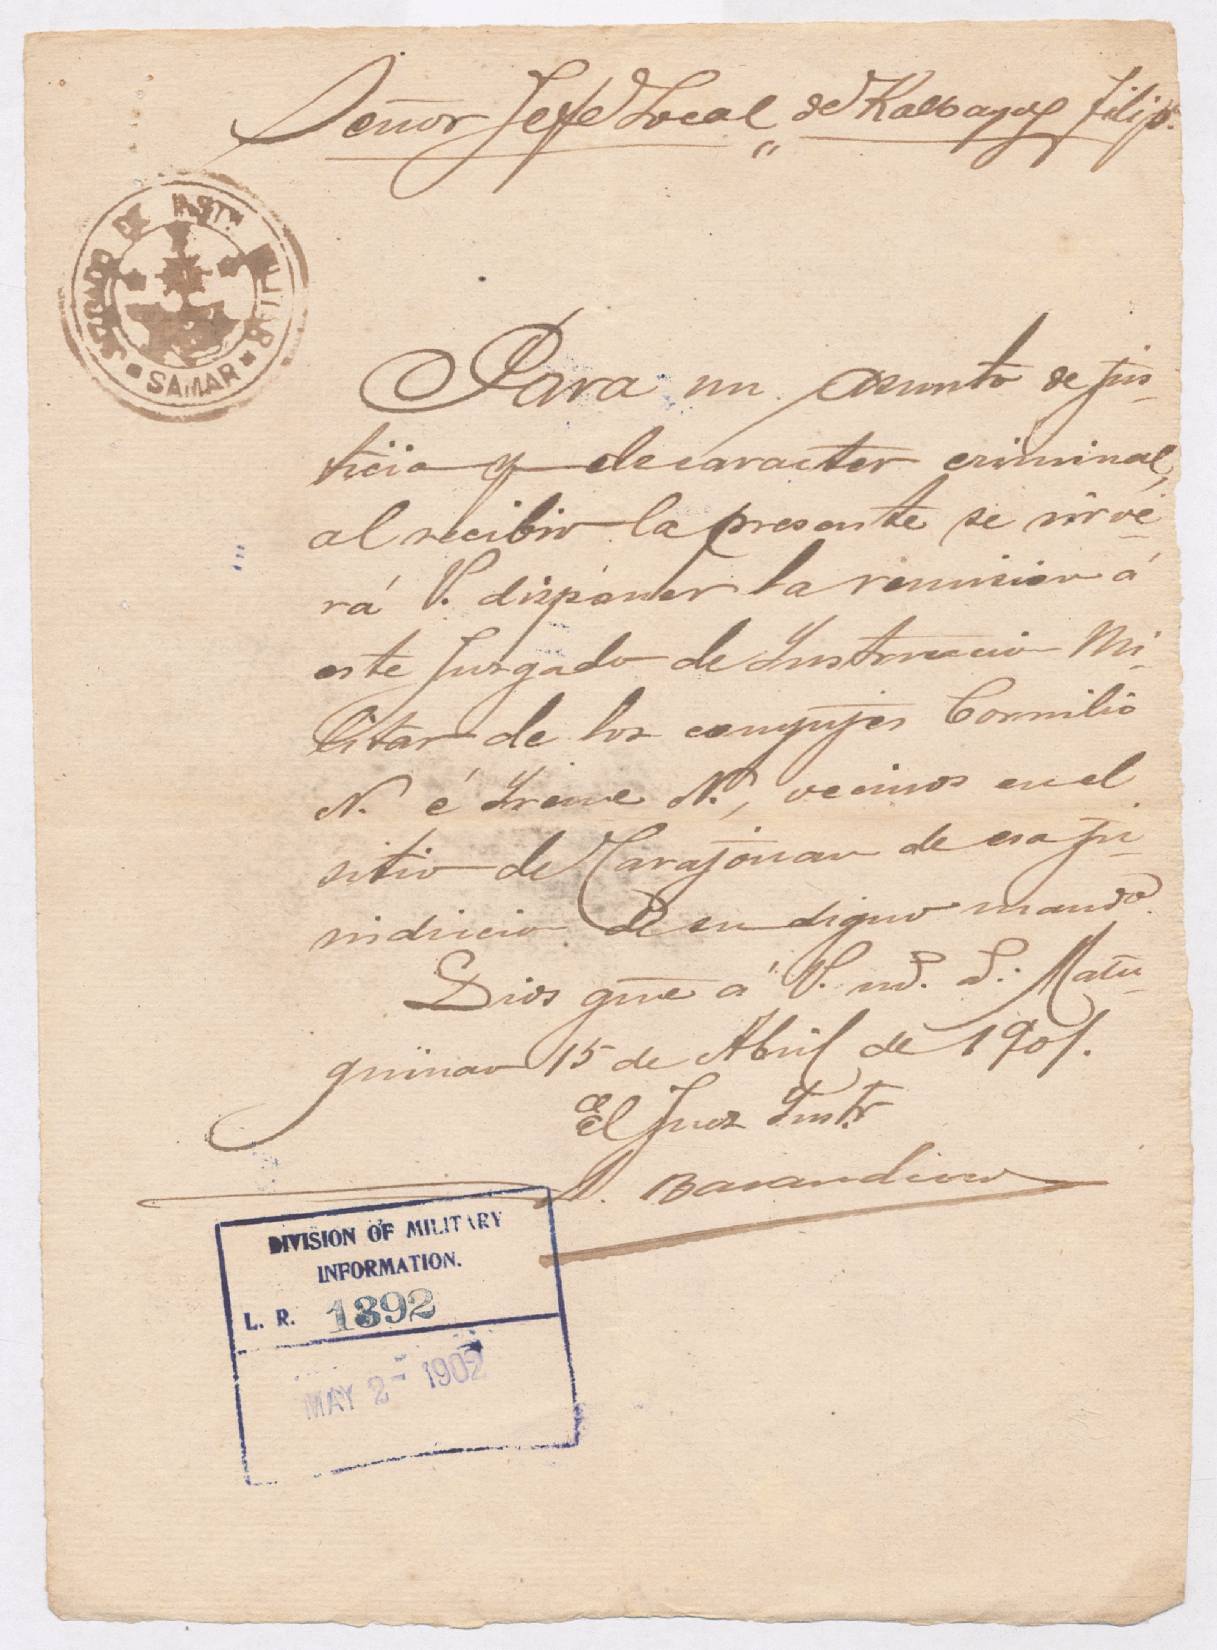 Señor Jefe Local de Kalbayog Filip.
JUZGADO DE INSTN. MILITAR
SAMAR
Para un asunto de jus-
ticia y de caracter criminal,
al recibir la presente se sirve-
rá V. disponer la remision á
este Juzgado de Instruccion Mi-
litar de los conyujes Cornilio
N. é Irene N., vecinos en el
sitio de Tarajonan de esa ju-
risdiccion de su digno mando.
Dios gue á V. m. a. Matu-
guinao 15 de Abril de 1901.
El Juez Instr.
DIVISION OF MILITARY
INFORMATION.
L. R. 1392
MAY 2- 1902